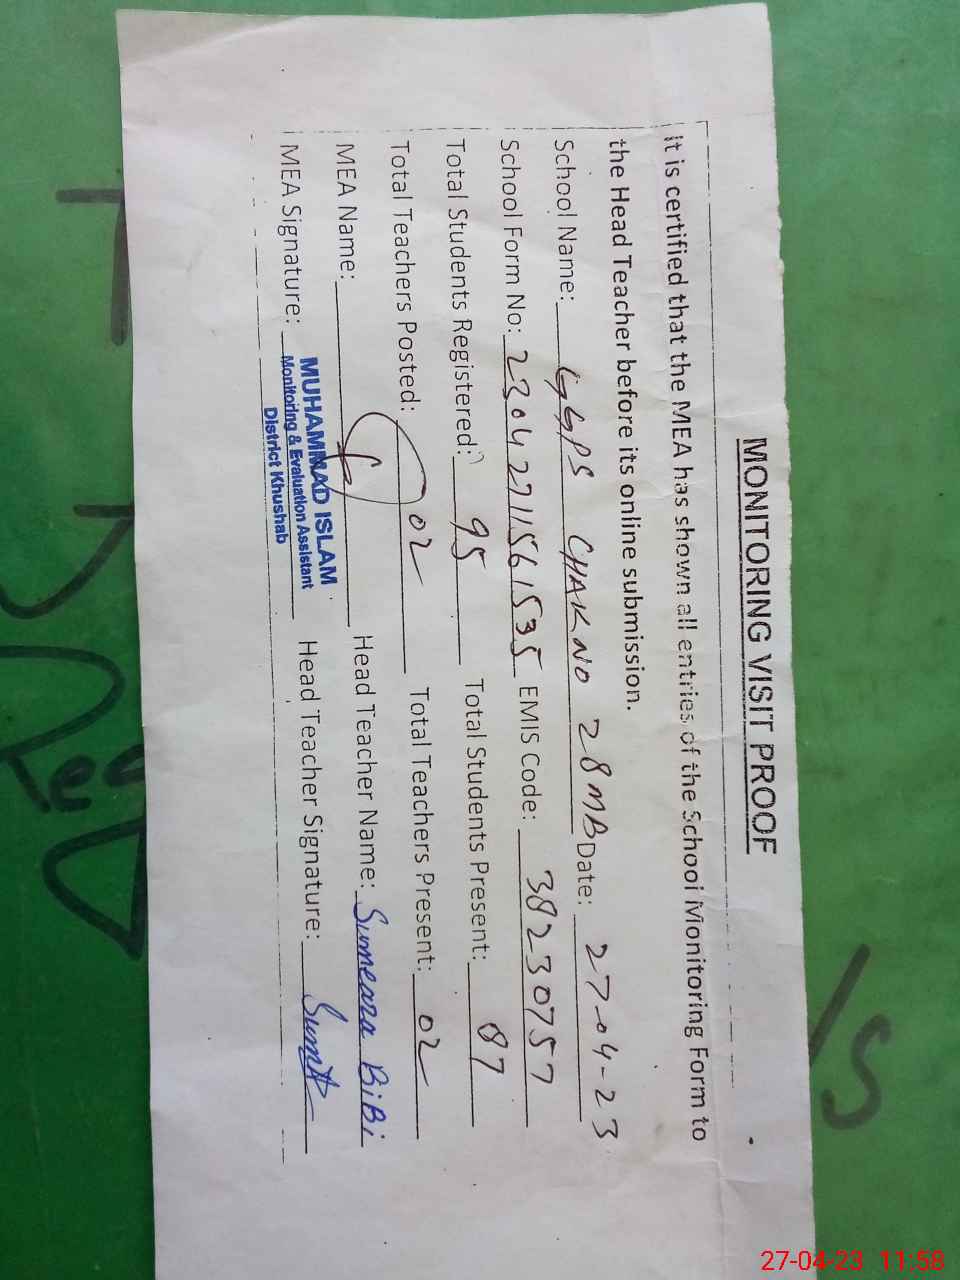 MONITORING VISIT PROOF
it is certified that the MEA has shown all entries of the School Monitoring Form to
the Head Teacher before its online submission.
School Name: GGPS CHAK NO 28 MB Date: 27-04-23
School Form No: 23042711561535 EMIS Code: 38230757
Total Students Registered: 95 Total Students Present: 87
Total Teachers Posted: 02 Total Teachers Present: 02
MEA Name: Head Teacher Name: Sumeara BiBi
MEA Signature: Head Teacher Signature:
MUHAMMAD ISLAM
Monitoring & Evaluation Assistant
District Khushab
27-04-23 11:58